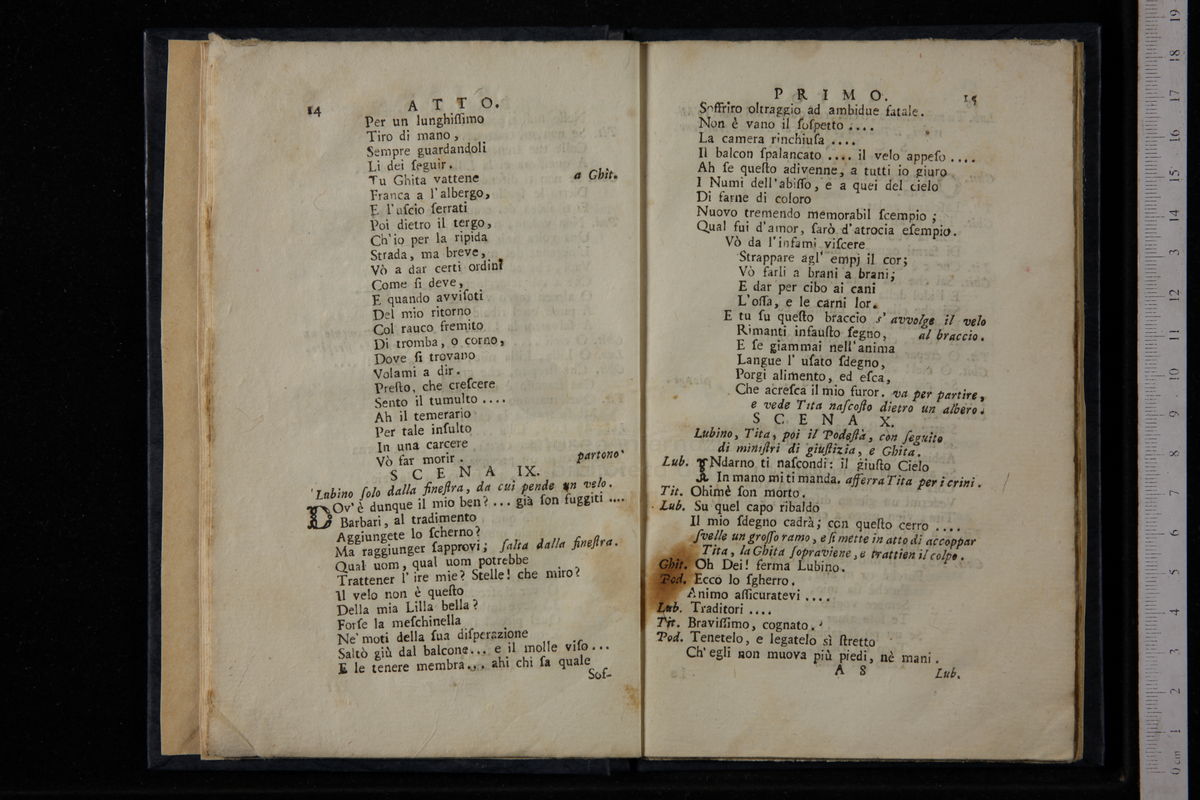 14
ATTO.
Per un lunghiſſimo
Tiro di mano,
Sempre guardandoli
Li dei ſeguir.
Tu Ghita vattene a Ghit.
Franca a l'albergo,
E l'uſcio ſerrati
Poi dietro il tergo,
Ch'io per la ripida
Strada, ma breve,
Vò a dar certi ordini
Come ſi deve,
E quando avviſoti
Del mio ritorno
Col rauco fremito
Di tromba, o corno,
Dove ſi trovano
Volami a dir.
Preſto, che creſcere
Sento il tumulto ....
Ah il temerario
Per tale inſulto
In una carcere
Vò far morir. partono
SCENA IX.
Lubino ſolo dalla fineſtra, da cui pende un velo.
DOv'è dunque il mio ben?... già ſon fuggiti ....
Barbari, al tradimento
Aggiungete lo ſcherno?
Ma raggiunger ſapprovi; ſalta dalla fineſtra.
Qual uom, qual uom potrebbe
Trattener l'ire mie? Stelle! che miro?
Il velo non è queſto
Della mia Lilla bella?
Forſe la meſchinella
Ne' moti della ſua diſperazione
Saltò giù dal balcone... e il molle viſo...
E le tenere membra... ahi chi ſa quale
Sof-
PRIMO. 15
Soffriro oltraggio ad ambidue fatale.
Non è vano il ſoſpetto ....
La camera rinchiuſa ....
Il balcon ſpalancato .... il velo appeſo ....
Ah ſe queſto adivenne, a tutti io giuro
I Numi dell'abiſſo, e a quei del cielo
Di farne di coloro
Nuovo tremendo memorabil ſcempio;
Qual fui d'amor, ſarò d'atrocia eſempio.
Vò da l'infami viſcere
Strappare agl' empj il cor;
Vò farli a brani a brani;
E dar per cibo ai cani
L'oſſa, e le carni lor.
E tu ſu queſto braccio s' avvolge il velo
Rimanti infauſto ſegno, al braccio.
E ſe giammai nell'anima
Langue l' uſato ſdegno,
Porgi alimento, ed eſca,
Che acreſca il mio furor. va per partire,
e vede Tita naſcoſto dietro un albero.
SCENA X.
Lubino, Tita, poi il Podeſtà, con ſeguito
di miniſtri di giuſtizia, e Ghita.
Lub. INdarno ti naſcondi: il giuſto Cielo
In mano mi ti manda. afferra Tita per i crini.
Tit. Ohimè ſon morto.
Lub. Su quel capo ribaldo
Il mio ſdegno cadrà; con queſto cerro ....
ſvelle un groſſo ramo, e ſi mette in atto di accoppar
Tita, la Ghita ſopraviene, e trattien il colpo.
Ghit. Oh Dei! ferma Lubino.
Pod. Ecco lo ſgherro.
Animo aſſicuratevi ....
Lub. Traditori ....
Tit. Braviſſimo, cognato.
Pod. Tenetelo, e legatelo sì ſtretto
Ch'egli non muova più piedi, nè mani.
A 8 Lub.
0 cm 1 2 3 4 5 6 7 8 9 10 11 12 13 14 15 16 17 18 19